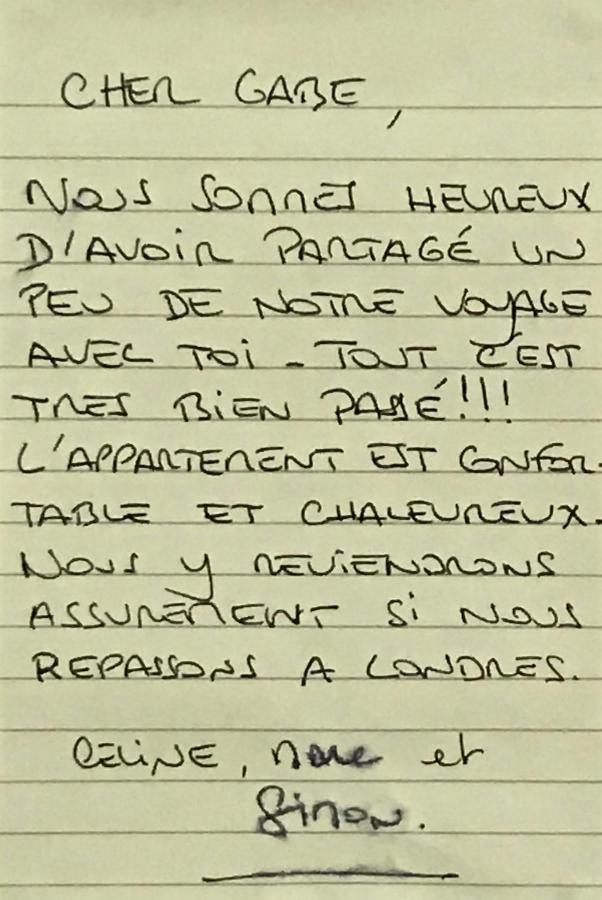 CHER GABE,
NOUS SOMMES HEUREUX
D'AVOIR PARTAGÉ UN
PEU DE NOTRE VOYAGE
AVEC TOI - TOUT C'EST
TRES BIEN PASSÉ!!!
L'APPARTEMENT EST CONFOR-
TABLE ET CHALEUREUX.
NOUS Y REVIENDRONS
ASSUREMENT SI NOUS
REPASSONS A LONDRES.
CELINE, Marc et
Simon.